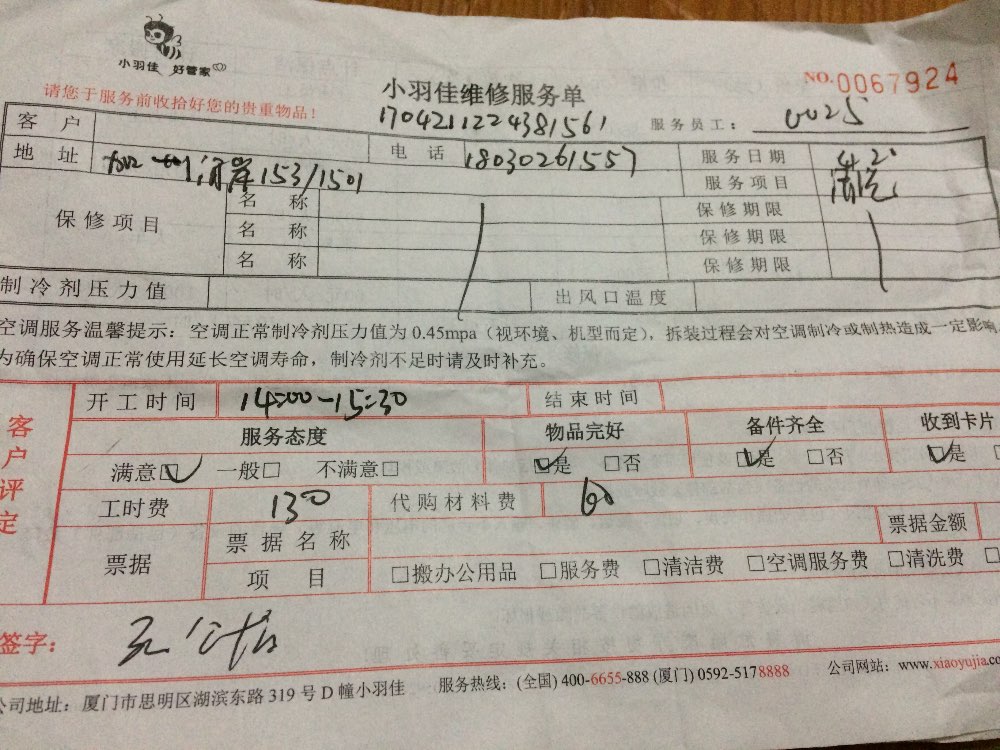 小羽佳 好管家
请您于服务前收拾好您的贵重物品！
小羽佳维修服务单
NO.0067924
1704211224381561
服务员工： 0025
客户
地址 153/1501 电话 18030261557 服务日期
服务项目 清洗
保修项目 名称 保修期限
名称 保修期限
名称 保修期限
制冷剂压力值 出风口温度
空调服务温馨提示：空调正常制冷剂压力值为 0.45mpa（视环境、机型而定），拆装过程会对空调制冷或制热造成一定影响
为确保空调正常使用延长空调寿命，制冷剂不足时请及时补充。
客户评定
开工时间 14:00-15:30 结束时间
服务态度 物品完好 备件齐全 收到卡片
满意☑ 一般□ 不满意□ ☑是 □否 ☑是 □否 ☑是
工时费 130 代购材料费
票据 票据名称 票据金额
项目 □搬办公用品 □服务费 □清洁费 □空调服务费 □清洗费
签字：
公司地址：厦门市思明区湖滨东路 319 号 D 幢小羽佳 服务热线：(全国) 400-6655-888 (厦门) 0592-5178888 公司网站：www.xiaoyujia.